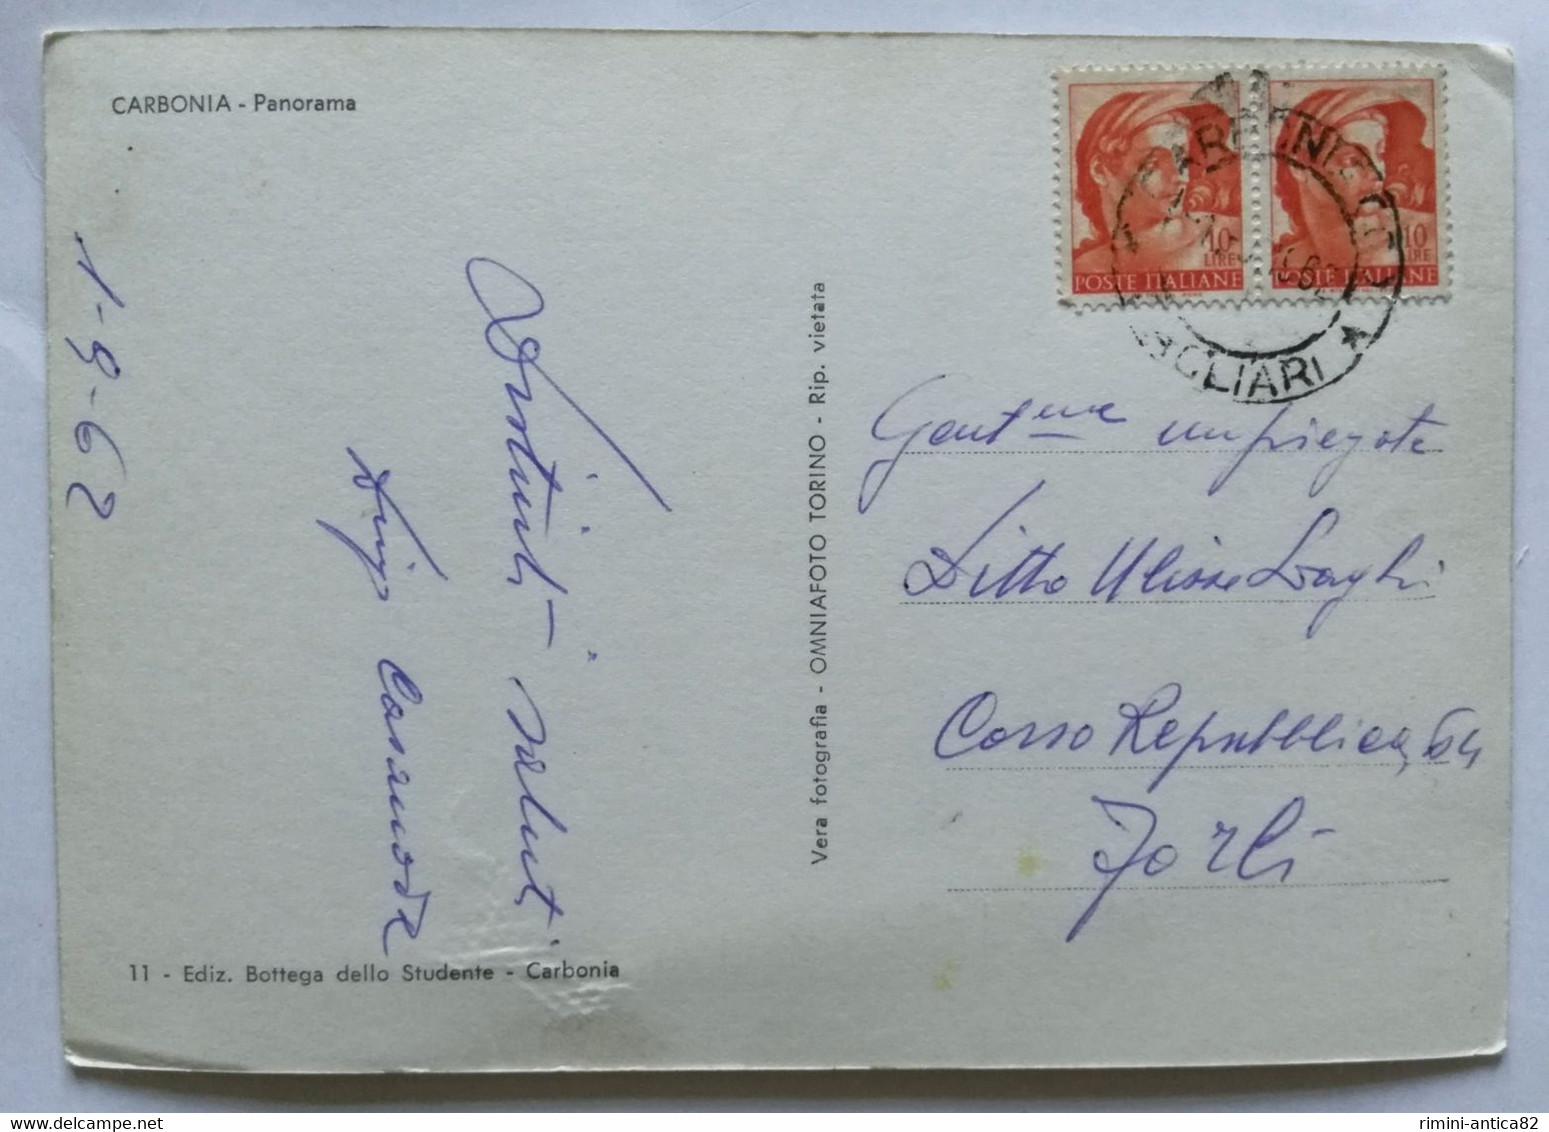 CARBONIA - Panorama
1-9-62
Distinti saluti
Luigi Casanova
11 - Ediz. Bottega dello Studente - Carbonia
Vera fotografia - OMNIAFOTO TORINO - Rip. vietata
10
LIRE
POSTE ITALIANE
10
LIRE
POSTE ITALIANE
CARBONIA
CAGLIARI
Gent.me impiegate
Ditta Ulisse Laghi
Corso Repubblica, 64
Forlì
rimini-antica82